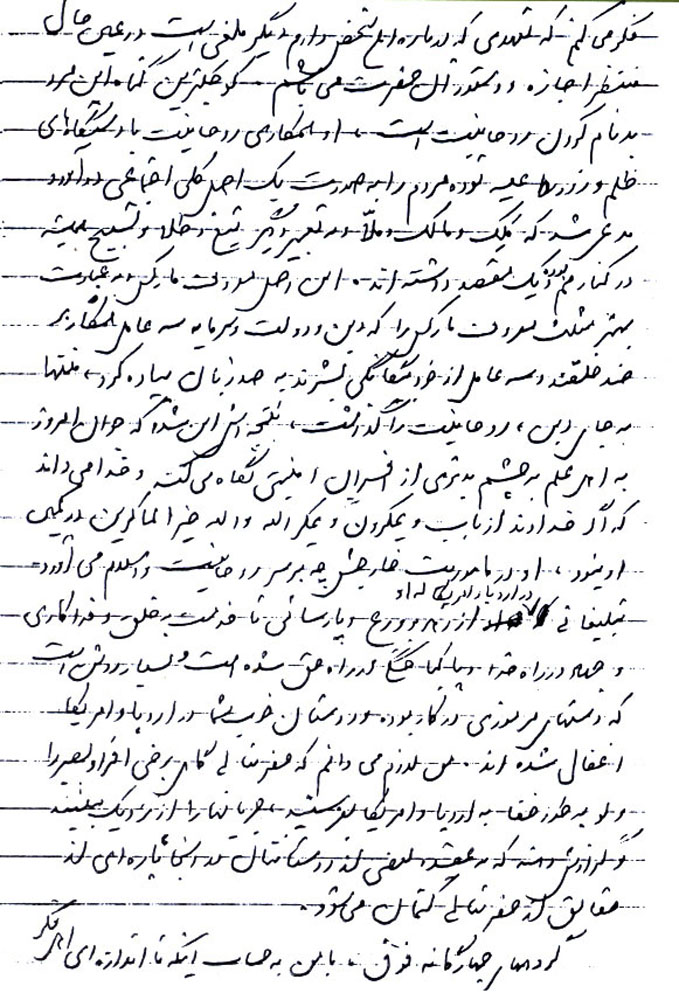 فکر می کنم که تعهدی که درباره این شخص دارم دیگر ملغی است در عین حال
منتظر اجازه و دستور آن حضرت می باشم. کوچکترین گناه این مرد
بدنام کردن روحانیت است، او همکاری روحانیت با دستگاههای
ظلم و زور علیه توده مردم را به صورت یک اصل کلی اجتماعی درآورد
مدعی شد که ملک و مالک و ملا و به تعبیر دیگر تیغ و طلا و تسبیح همیشه
در کنار هم بوده و یک مقصد داشته اند. این اصل معروف مارکس و به عبارت
بهتر مثلث معروف مارکس را که دین و دولت و سرمایه سه عامل همکار بر
ضد خلقند و سه عامل از خود بیگانگی بشرند به صد زبان پیاده کرد، منتها
به جای دین، روحانیت را گذاشت، نتیجه اش این شد که جوان امروز
به اهل علم به چشم بدتری از افسران امنیتی نگاه می کند و خدا می داند
که اگر خداوند از باب و یمکرون و یمکر الله و الله خیر الماکرین در کمین
او نبود، او در ماموریت خارجش چه بر سر روحانیت و اسلام می آورد.
تبلیغاتی در اروپا و امریکا له او از زهد و ورع و پارسائی تا خدمت به خلق و فداکاری
و جهاد در راه خدا و پاکباختگی در راه حق شده است و بسیار روشن است
که دستهای مرموزی در کار بوده و دوستان خوب شما در اروپا و امریکا
اغفال شده اند. من لازم می دانم که حضرتعالی گاهی برخی افراد بصیر را
ولو به طور خفا به اروپا و امریکا بفرستید، جریانها را از نزدیک ببینند
و گزارش دهند که به عقیده بعضی از دوستانتان در آنجا پاره ای از
حقایق از حضرتعالی کتمان می شود.
گروههای چهارگانه فوق، با من به حساب اینکه تا اندازه ای اهل فکر